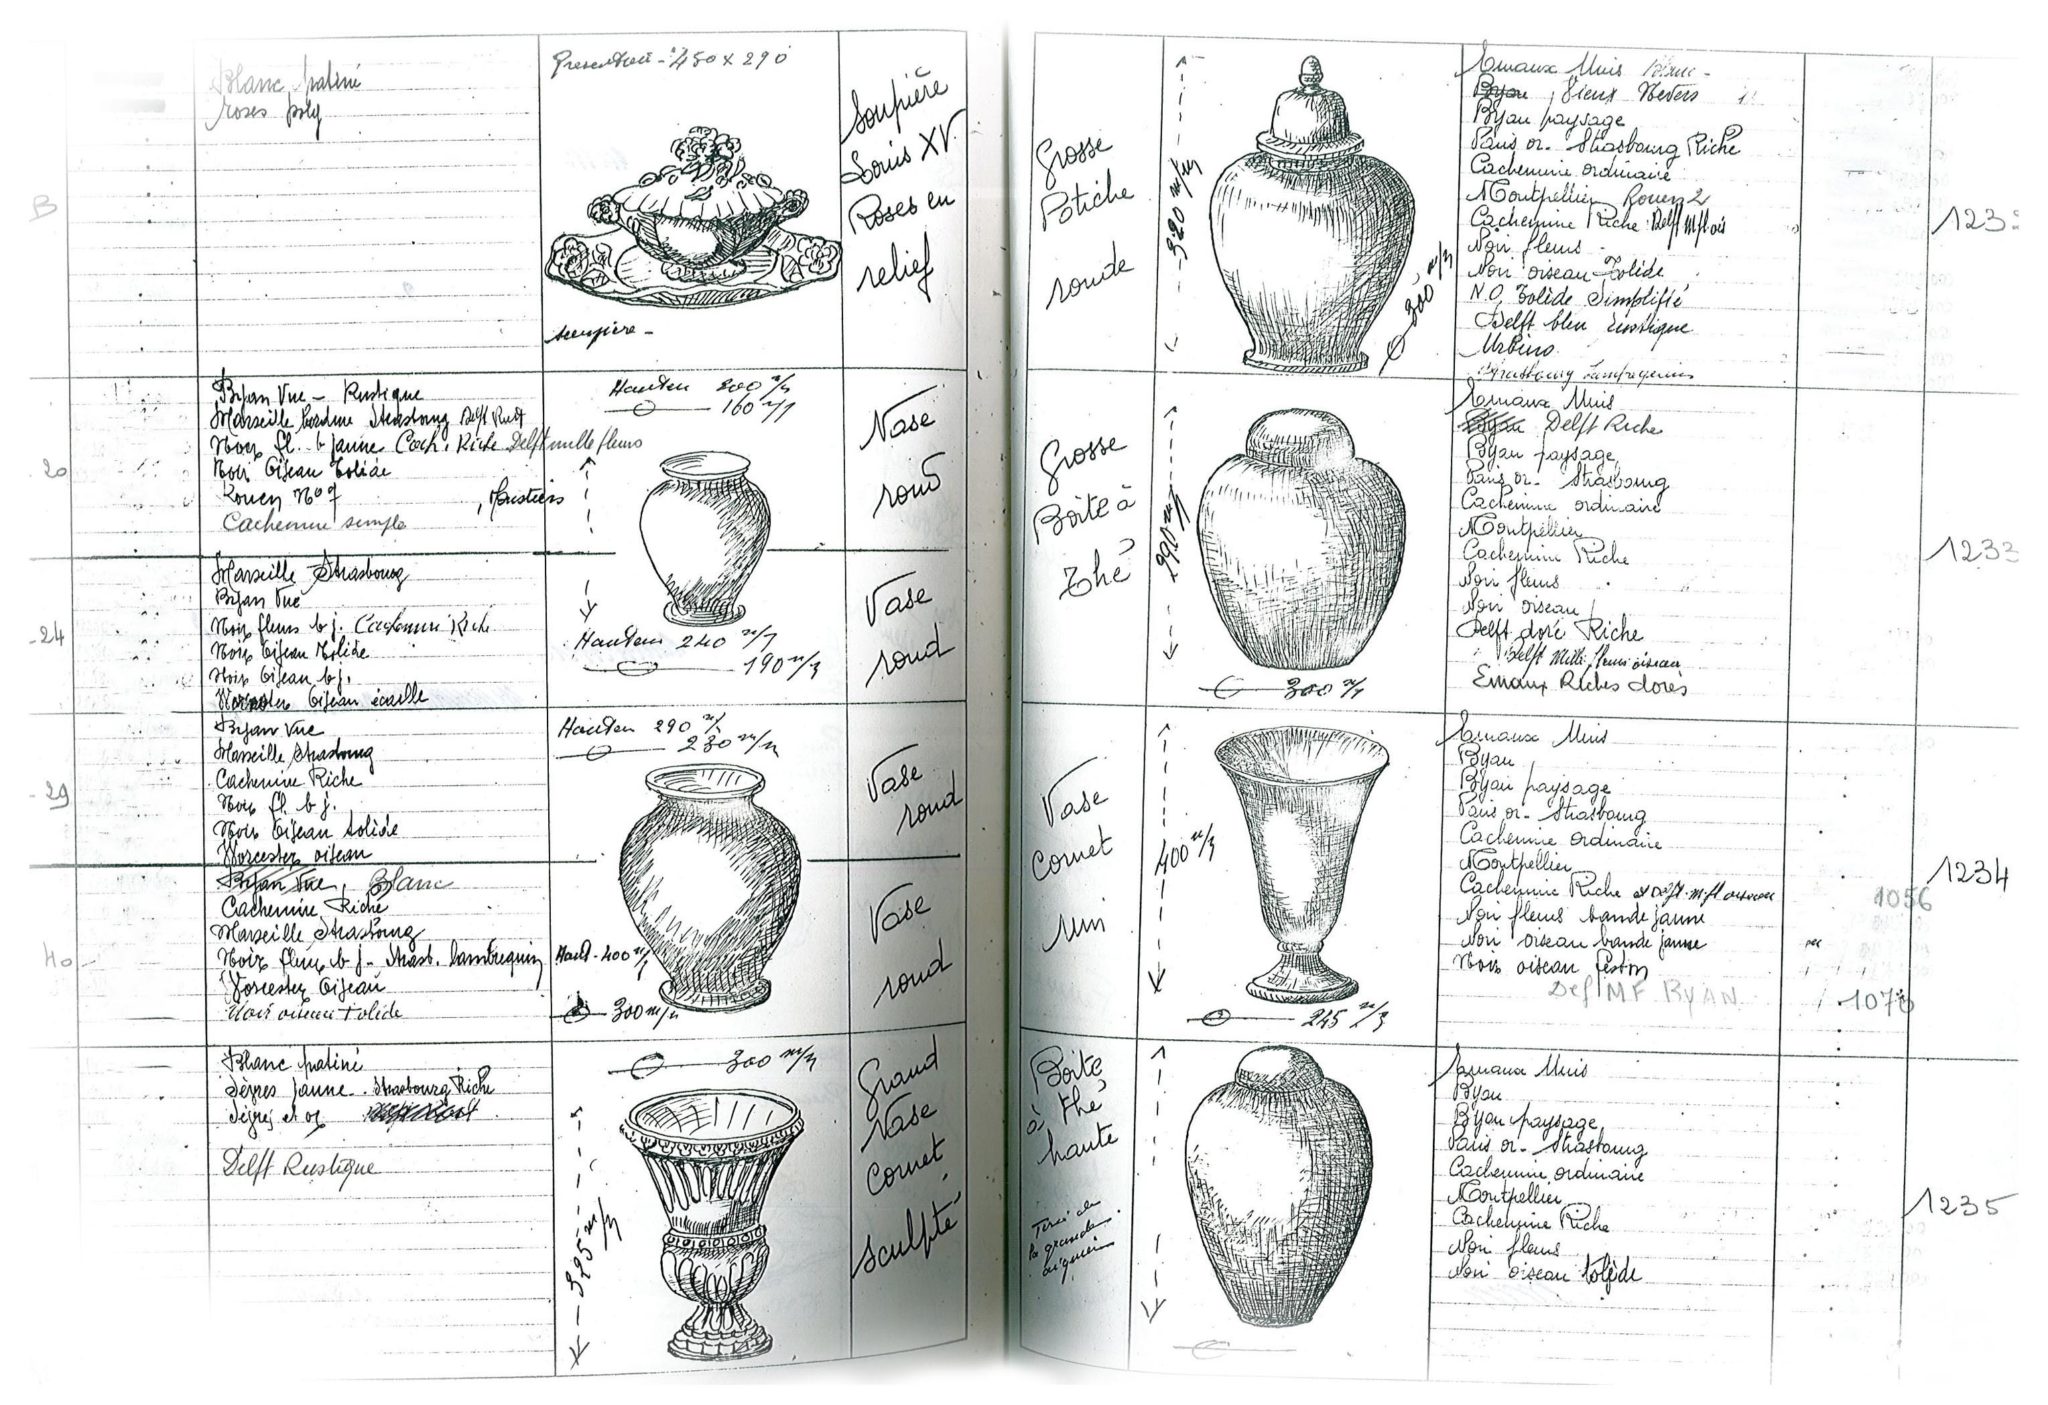 Blanc patiné
roses poly
Presentoir - 450 x 290
soupière -
Soupière
Louis XV.
Roses en
relief
B
Byan Vue - Rustique
Marseille bordure Strasbourg Delft Rust
Noir fl. b jaune Cach. Riche Delft mille fleurs
Noir Oiseau Tolède
Rouen N° 7, Moustiers
Cachemire simple
Hauteur 200 m/m
160 m/m
Vase
rond
20
Marseille Strasbourg
Byan Vue
Noir fleurs b j. Cachemire Riche
Noir Oiseau Tolède
Noir Oiseau b j.
Worcester Oiseau écaille
Hauteur 240 m/m
190 m/m
Vase
rond
-24
Byan Vue
Marseille Strasbourg
Cachemire Riche
Noir fl. b j.
Noir Oiseau tolède
Worcester oiseau
Hauteur 290 m/m
230 m/m
Vase
rond
-29
Byan Vue, Blanc
Cachemire Riche
Marseille Strasbourg
Noir fleurs b j - Strasb. lambrequin
Worcester Oiseau
Noir oiseau tolède
Haut - 400 m/m
300 m/m
Vase
rond
40
Blanc patiné
Sèvres jaune - Strasbourg Riche
Sèvres et or
Delft Rustique
300 m/m
325 m/m
Grand
Vase
Cornet
sculpté
Grosse
Potiche
ronde
320 m/m
300 m/m
Emaux Unis Blanc -
Byan, Vieux Nevers
Byan paysage
Paris or - Strasbourg Riche
Cachemire ordinaire
Montpellier Rouen 2
Cachemire Riche Delft M fl ois
Noir fleurs
Noir oiseau Tolède
N.O. Tolède Simplifié
Delft bleu Rustique
Urbino
Strasbourg Lambrequins
123
Grosse
Boite à
thé
290 m/m
300 m/m
Emaux Unis
Byan Delft Riche
Byan paysage
Paris or - Strasbourg
Cachemire ordinaire
Montpellier
Cachemire Riche
Noir fleurs
Noir oiseau
Delft doré Riche
Delft Mille fleurs oiseau
Emaux Riches dorés
1233
Vase
cornet
uni
400 m/m
245 m/m
Emaux Unis
Byan
Byan paysage
Paris or - Strasbourg
Cachemire ordinaire
Montpellier
Cachemire Riche et Delft m. fl oiseau
Noir fleurs bande jaune
Noir oiseau bande jaune
Noir oiseau feston
Def MF BYAN
1056
1234
Boite
à thé
haute
Tirée de
la grande
aiguière
Emaux Unis
Byan
Byan paysage
Paris or - Strasbourg
Cachemire ordinaire
Montpellier
Cachemire Riche
Noir fleurs
Noir oiseau tolède
1235